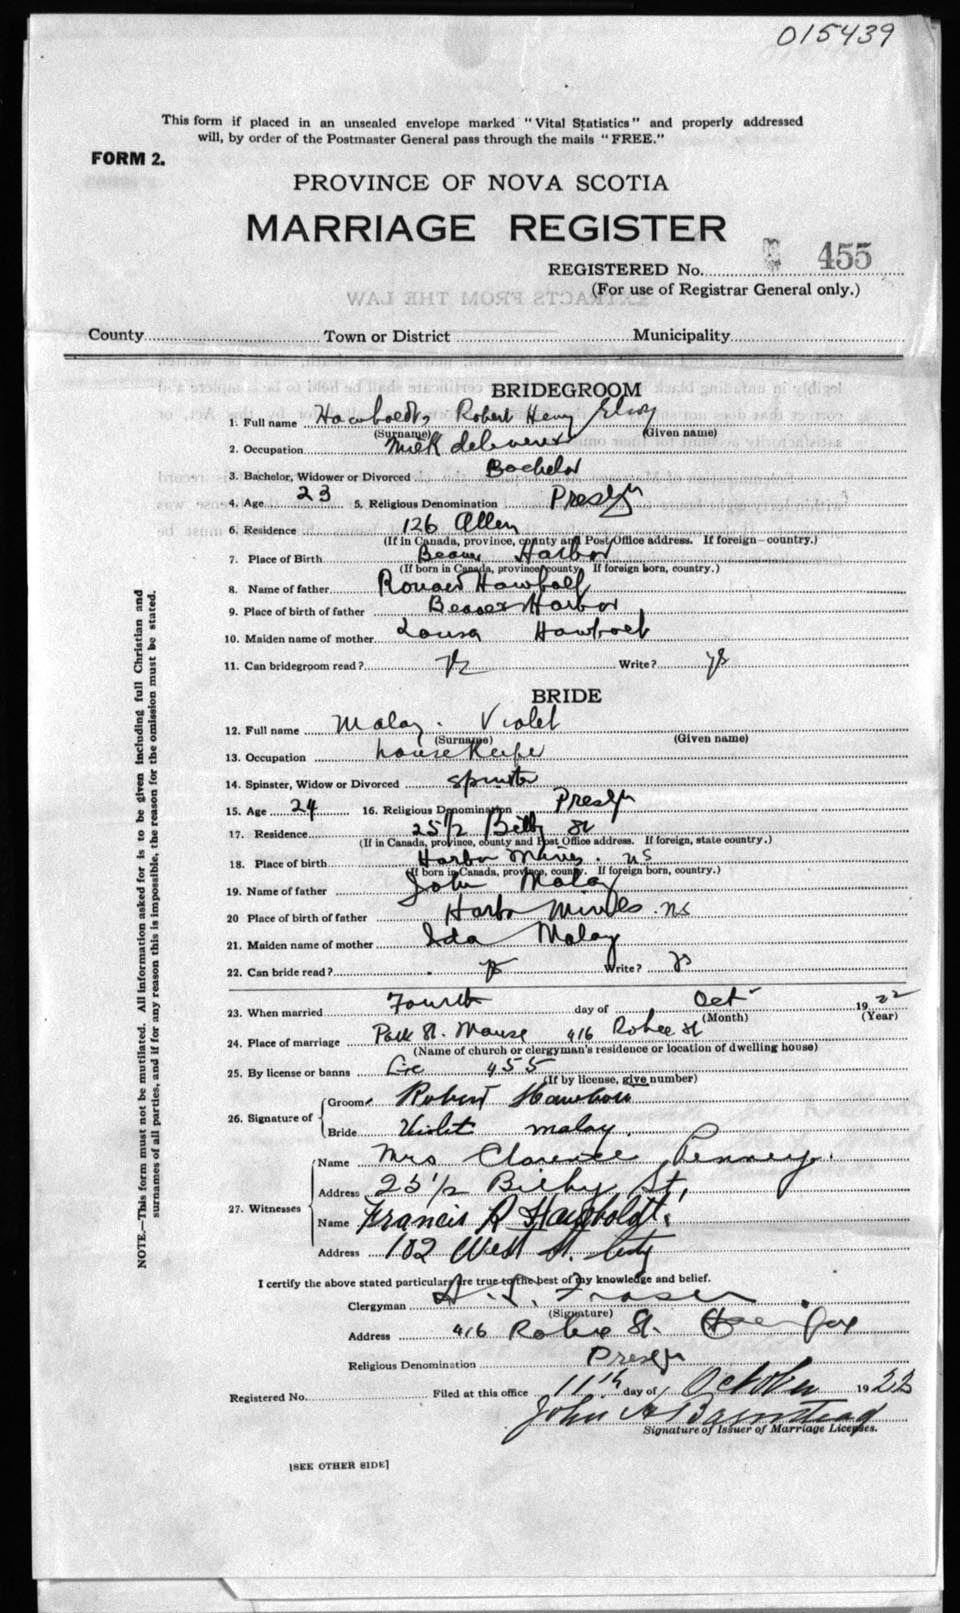 015439
This form if placed in an unsealed envelope marked "Vital Statistics" and properly addressed
will, by order of the Postmaster General pass through the mails "FREE."
FORM 2.
PROVINCE OF NOVA SCOTIA
MARRIAGE REGISTER
REGISTERED No. 455
(For use of Registrar General only.)
EXTRACTS FROM THE LAW
County Town or District Municipality
BRIDEGROOM
1. Full name Hawboldt, Robert Henry Elroy
(Surname) (Given name)
2. Occupation milk deliverer
3. Bachelor, Widower or Divorced Bachelor
4. Age 23 5. Religious Denomination Presbyn
6. Residence 126 Allen
(If in Canada, province, county and Post Office address. If foreign-country.)
7. Place of Birth Beaver Harbor
(If born in Canada, province, county. If foreign born, country.)
8. Name of father Hawbolt
9. Place of birth of father Beaver Harbor
10. Maiden name of mother Louisa Hawbolt
11. Can bridegroom read? Write? ys
BRIDE
12. Full name Malay. Violet
(Surname) (Given name)
13. Occupation house keeper
14. Spinster, Widow or Divorced spinster
15. Age 24 16. Religious Denomination Presbyn
17. Residence 25 1/2 Bilby St
(If in Canada, province, county and Post Office address. If foreign, state country.)
18. Place of birth Harbor Mines. NS
(If born in Canada, province, county. If foreign born, country.)
19. Name of father John Malay
20 Place of birth of father Harbor Mines. NS
21. Maiden name of mother Ida Malay
22. Can bride read? ys Write? ys
23. When married Fourth day of Oct 1922
(Month) (Year)
24. Place of marriage Park St. Manse 416 Robie St
(Name of church or clergyman's residence or location of dwelling house)
25. By license or banns Lic 455
(If by license, give number)
26. Signature of Groom Robert Hawbolt
Bride Violet malay.
27. Witnesses Name Mrs Clarence Penney.
Address 25 1/2 Bilby St,
Name Francis R Hawboldt.
Address 102 West St. City
I certify the above stated particulars are true to the best of my knowledge and belief.
Clergyman Fraser
(Signature)
Address 416 Robie St. Halifax
Religious Denomination Presbyn
Registered No. Filed at this office 11th day of October 1922
John A Barnstead
Signature of Issuer of Marriage Licenses.
[SEE OTHER SIDE]
NOTE.—This form must not be mutilated. All information asked for is to be given including full Christian and
surnames of all parties, and if for any reason this is impossible, the reason for the omission must be stated.